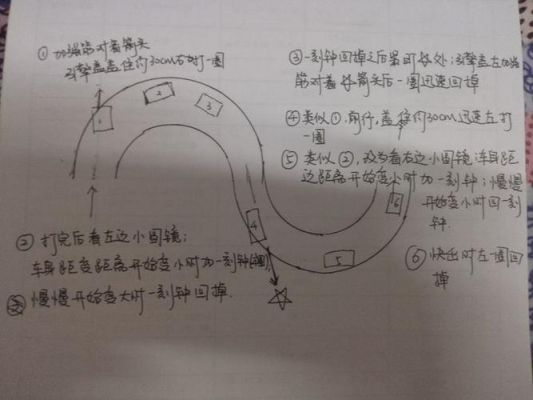 ① 加强筋对着箭头
引擎盖盖住约30cm右打一圈
② 打完后看左边小圆镜;
车身距边距离开始变小时加一刻钟
慢慢开始变大时一刻钟回掉.
③ 一刻钟回掉之后
引擎盖左加强
筋对着
箭头后一圈迅速回掉
④ 类似①,前行,盖住约30cm迅速左打
一圈
⑤ 类似②,改为看右边小圆镜:车身距
边距离开始变小时加一刻钟;慢慢
开始变
时回一刻
钟.
⑥ 快出时左一圈回
掉
1
2
3
4
5
6